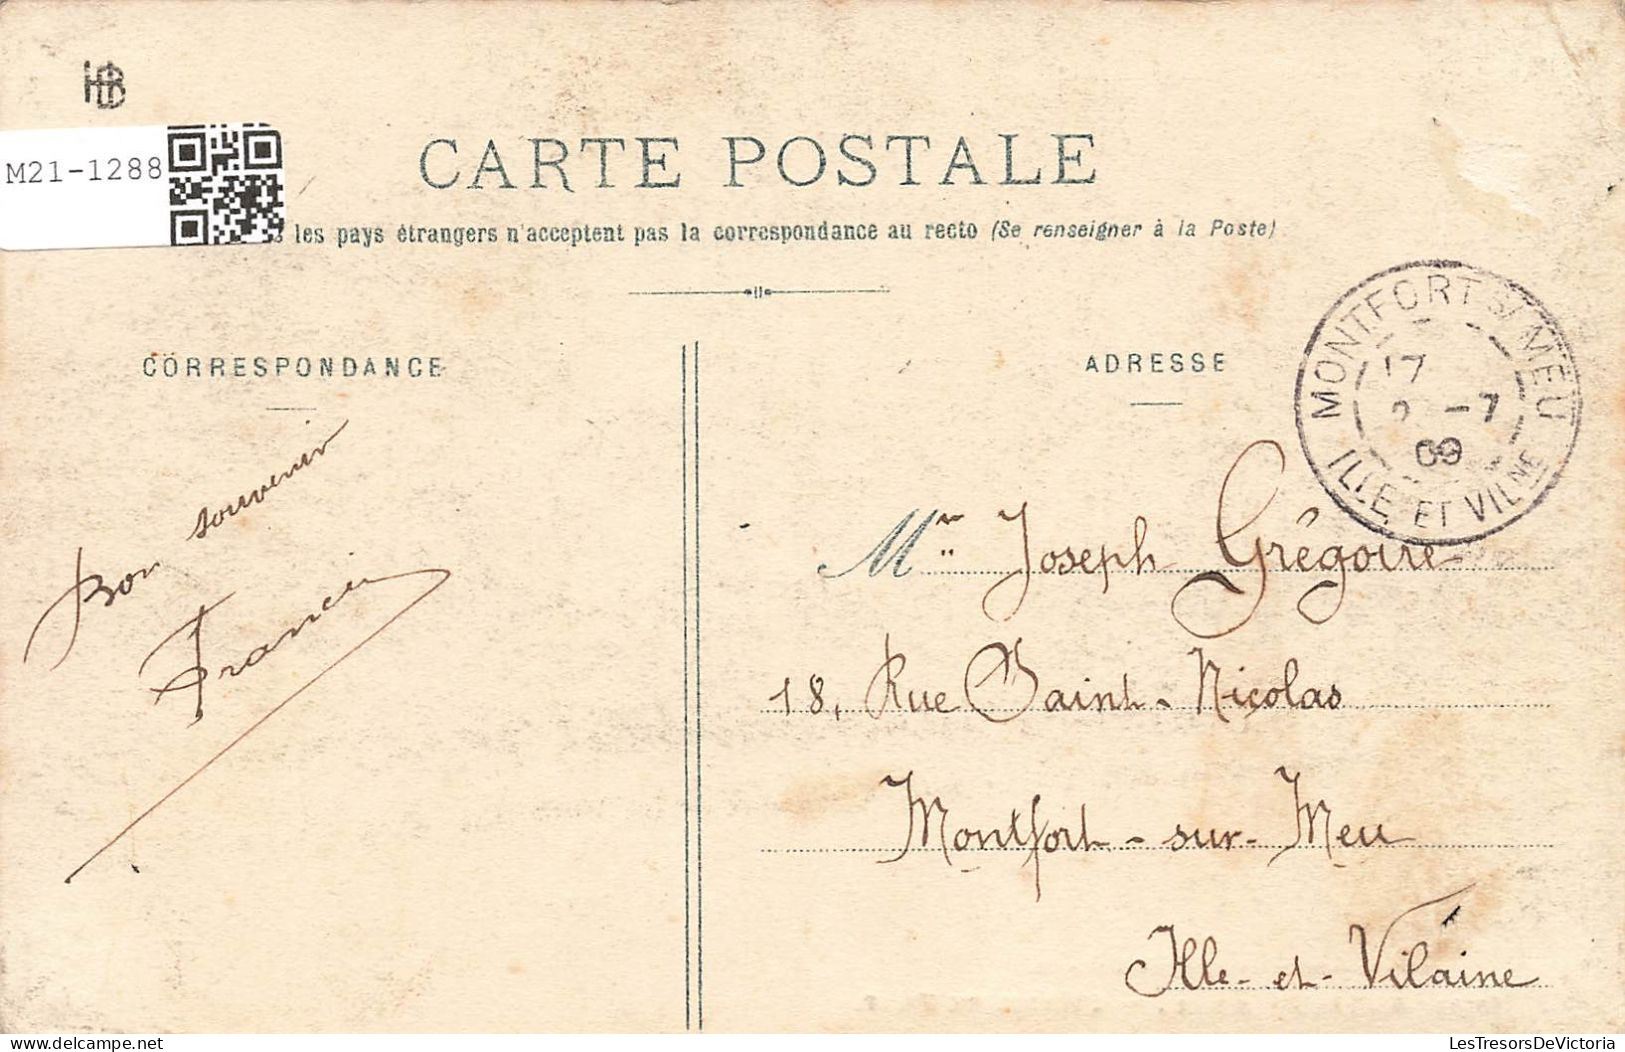 HB
M21-1288
CARTE POSTALE
les pays étrangers n'acceptent pas la correspondance au recto (Se renseigner à la Poste)
CORRESPONDANCE
ADRESSE
MONTFORT S/ MEU
17
-7
09
ILLE ET VILNE
Bon souvenir
Mr Joseph Grégoire
18, Rue Saint-Nicolas
Montfort-sur-Meu
Ille-et-Vilaine
LesTresorsDeVictoria
M21-1288 / delcampe.net